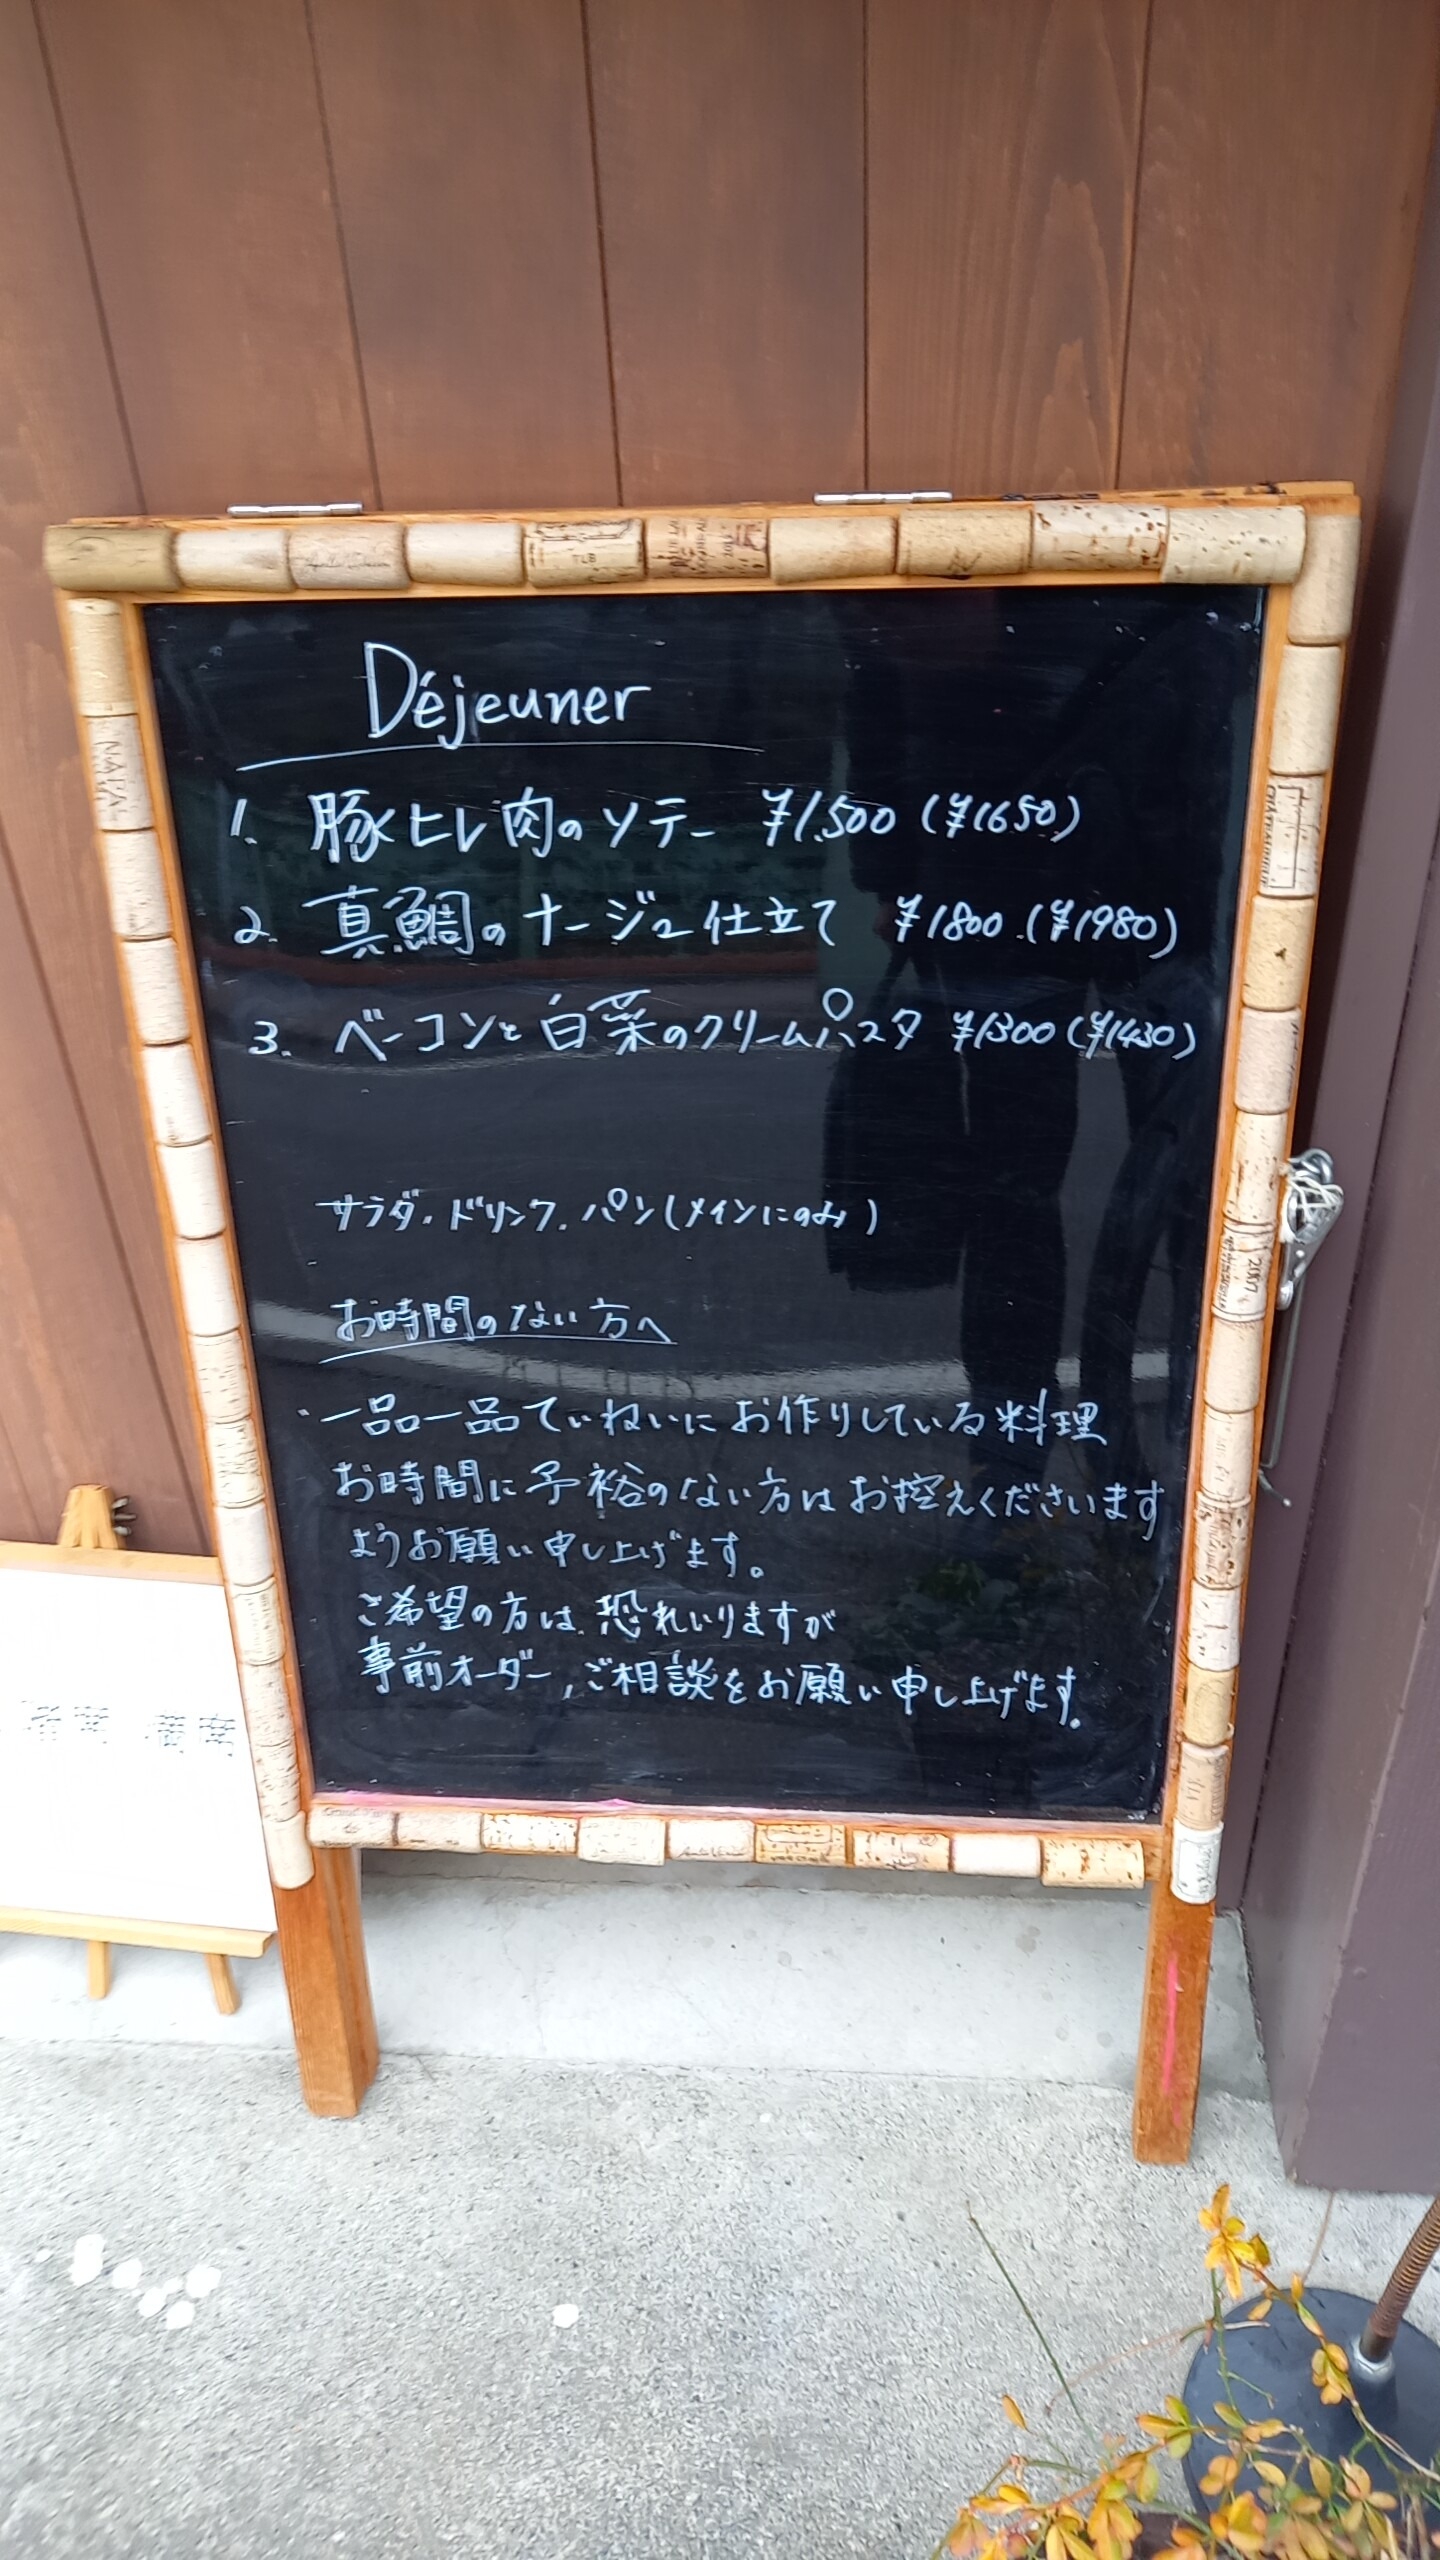 Déjeuner
1. 豚ヒレ肉のソテー ¥1,500 (¥1650)
2. 真鯛のナージュ仕立て ¥1800 (¥1980)
3. ベーコンと白菜のクリームパスタ ¥1300 (¥1430)
サラダ・ドリンク・パン(メインにのみ)
お時間のない方へ
・一品一品ていねいにお作りしている料理
お時間に予裕のない方はお控えくださいます
ようお願い申し上げます。
ご希望の方は、恐れいりますが
事前オーダー、ご相談をお願い申し上げます。
TLB
NAPA